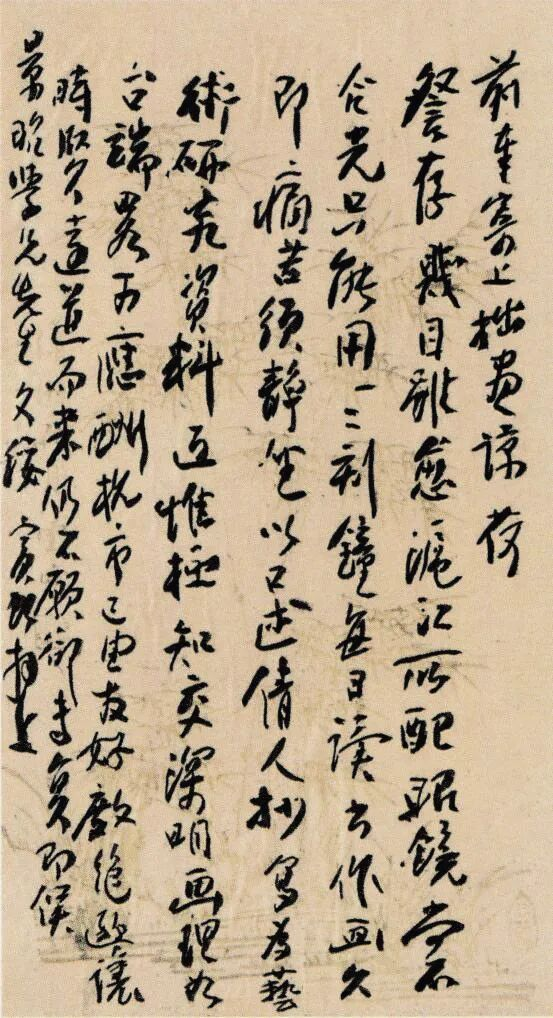 前车寄上拙画谅荷
詧存几目虽愈沪江所配眼镜尚不
合光只能用一二刻钟每日读书作画久
即痛苦须静坐以口述倩人抄写为艺
术研究资料近惟极知交深明画理如
台端略可应酬杭市已由友好敬绝
时欧久远道而来仍不愿却专复即候
景昭学兄先生文绥 宾虹拜上